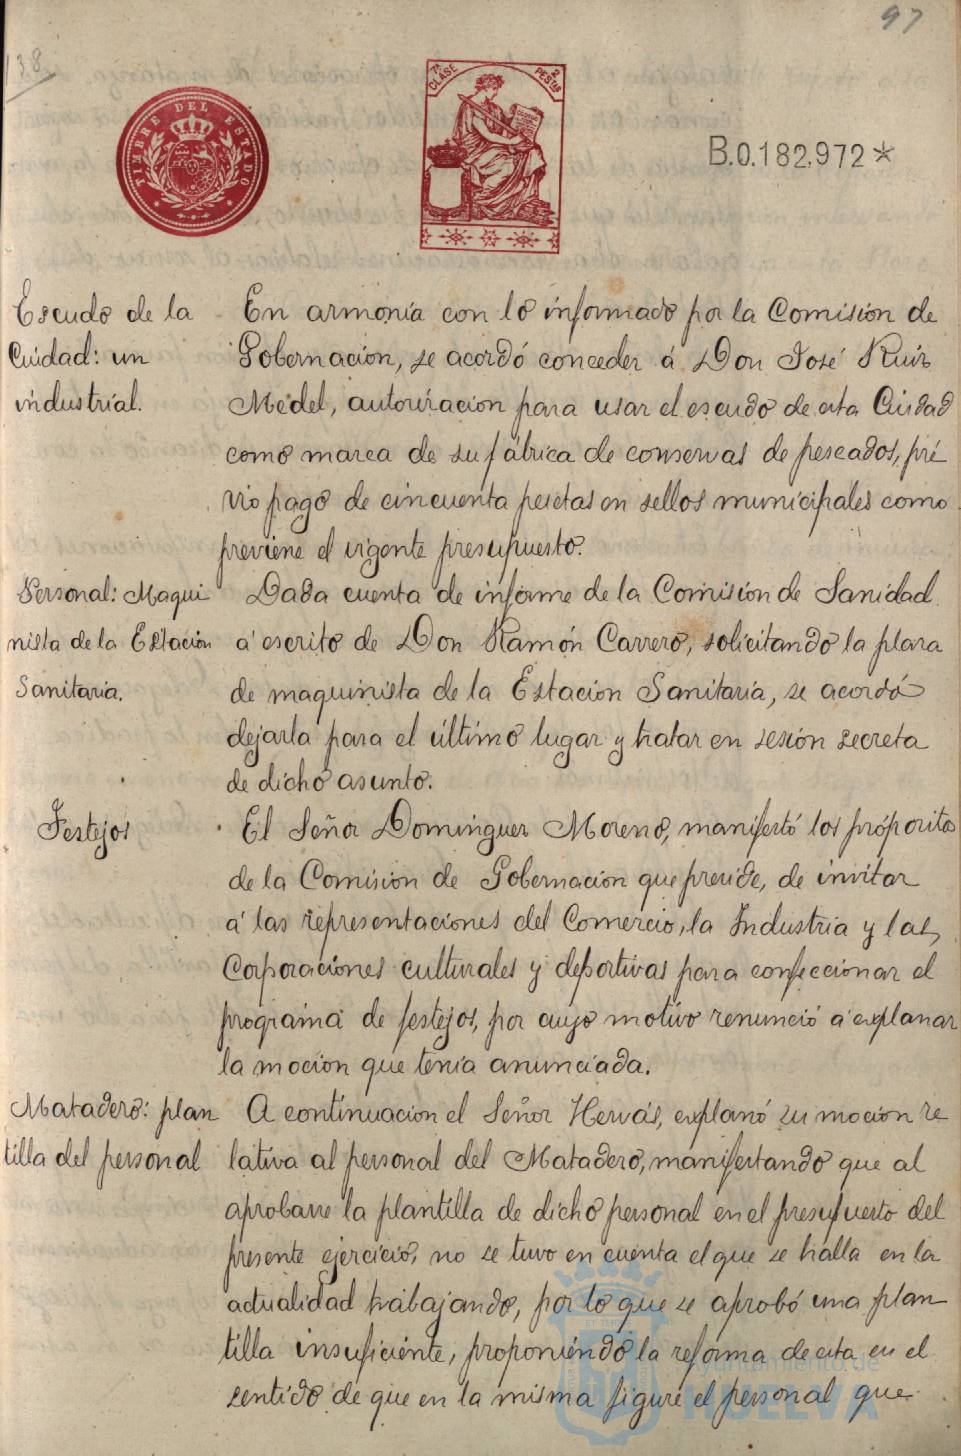 97
138
TIMBRE DEL ESTADO
7ª CLASE
2 PESTAS
B.0.182.972*
Escudo de la
Cuidad: un
industrial.
En armonía con lo informado por la Comisión de
Gobernación, se acordó conceder á Don José Ruiz
Medel, autorización para usar el escudo de esta Ciudad
como marca de su fábrica de conservas de pescados, pré
vio pago de cincuenta pesetas en sellos municipales como
previene el vigente presupuesto.
Personal: Maqui
nista de la Estación
Sanitaria.
Dada cuenta de informe de la Comisión de Sanidad
á escrito de Don Ramón Carrero, solicitando la plaza
de maquinista de la Estación Sanitaria, se acordó
dejarla para el último lugar y tratar en sesión secreta
de dicho asunto.
Festejos
El Señor Dominguez Moreno, manifestó los própositos
de la Comisión de Gobernación que preside, de invitar
á las representaciones del Comercio, la Industria y las
Corporaciones culturales y deportivas para confeccionar el
programa de festejos, por cuyo motivo renunció á explanar
la moción que tenía anunciada.
Matadero: plan
tilla del personal
A continuación el Señor Hervás, explanó su moción re
lativa al personal del Matadero, manifestando que al
aprobarse la plantilla de dicho personal en el presupuesto del
presente ejercicio, no se tuvo en cuenta el que se halla en la
actualidad trabajando, por lo que se aprobó una plan
tilla insuficiente, proponiendo la reforma de esta en el
sentido de que en la misma figure el personal que
Ayuntamiento de
HUELVA